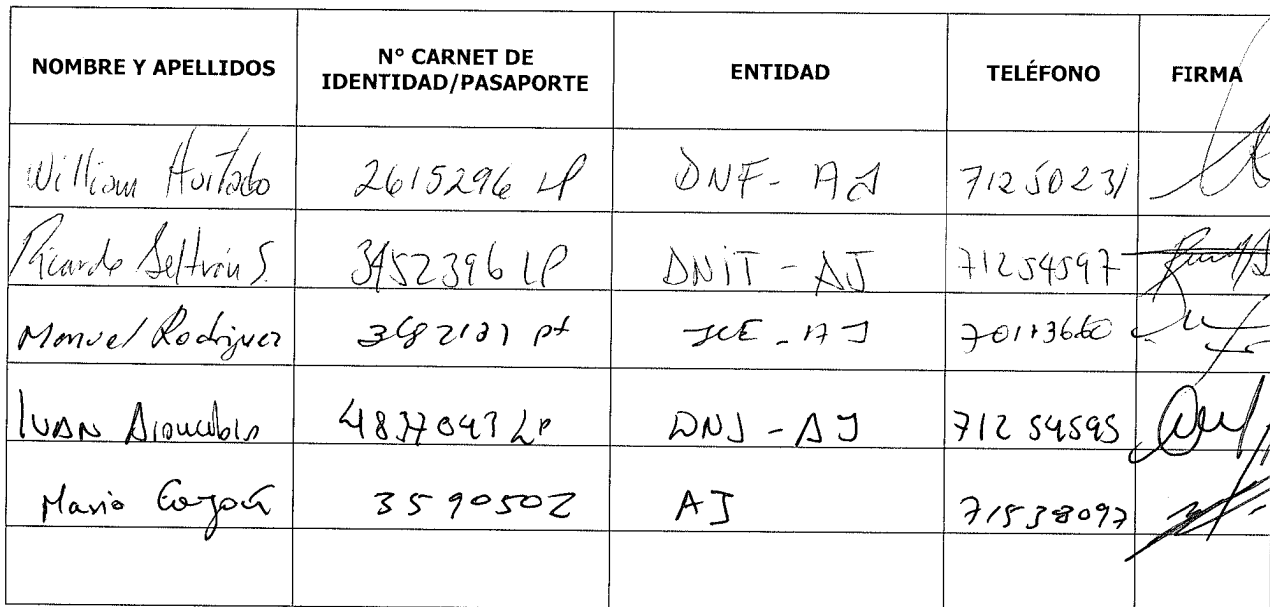 NOMBRE Y APELLIDOS N° CARNET DE IDENTIDAD/PASAPORTE ENTIDAD TELÉFONO FIRMA
William Hurtado 2615296 LP DNF - AJ 71250231
Ricardo Beltrán S. LP DNIT - AJ 71254597
Manuel Rodriguez pt - AJ
IVAN LP DNJ - AJ 71254595
Mario 3590502 AJ 71538097